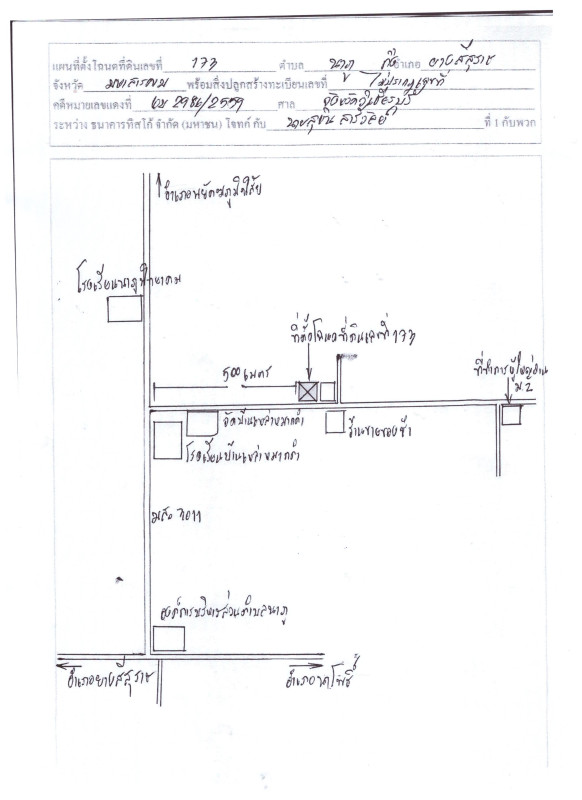 แผนที่ตั้งโฉนดที่ดินเลขที่ 173 ตำบล นาภู กิ่งอำเภอ ยางสีสุราช
จังหวัด มหาสารคาม พร้อมสิ่งปลูกสร้างทะเบียนเลขที่ ไม่ปรากฏเลขที่
คดีหมายเลขแดงที่ 2986/2559 ศาล จังหวัด
ระหว่าง ธนาคารทิสโก้ จำกัด (มหาชน) โจทก์ กับ นาย ที่ 1 กับพวก
อำเภอพยัคฆภูมิพิสัย
โรงเรียนนาภูพิทยาคม
ที่ตั้งโฉนดที่ดินเลขที่ 173
500 เมตร
ที่ทำการผู้ใหญ่บ้าน
ม.2
วัดบ้านเหล่าหมากคำ
ร้านขายของชำ
โรงเรียนบ้านเหล่าหมากคำ
องค์การบริหารส่วนตำบลนาภู
อำเภอยางสีสุราช
อำเภอนาโพธิ์